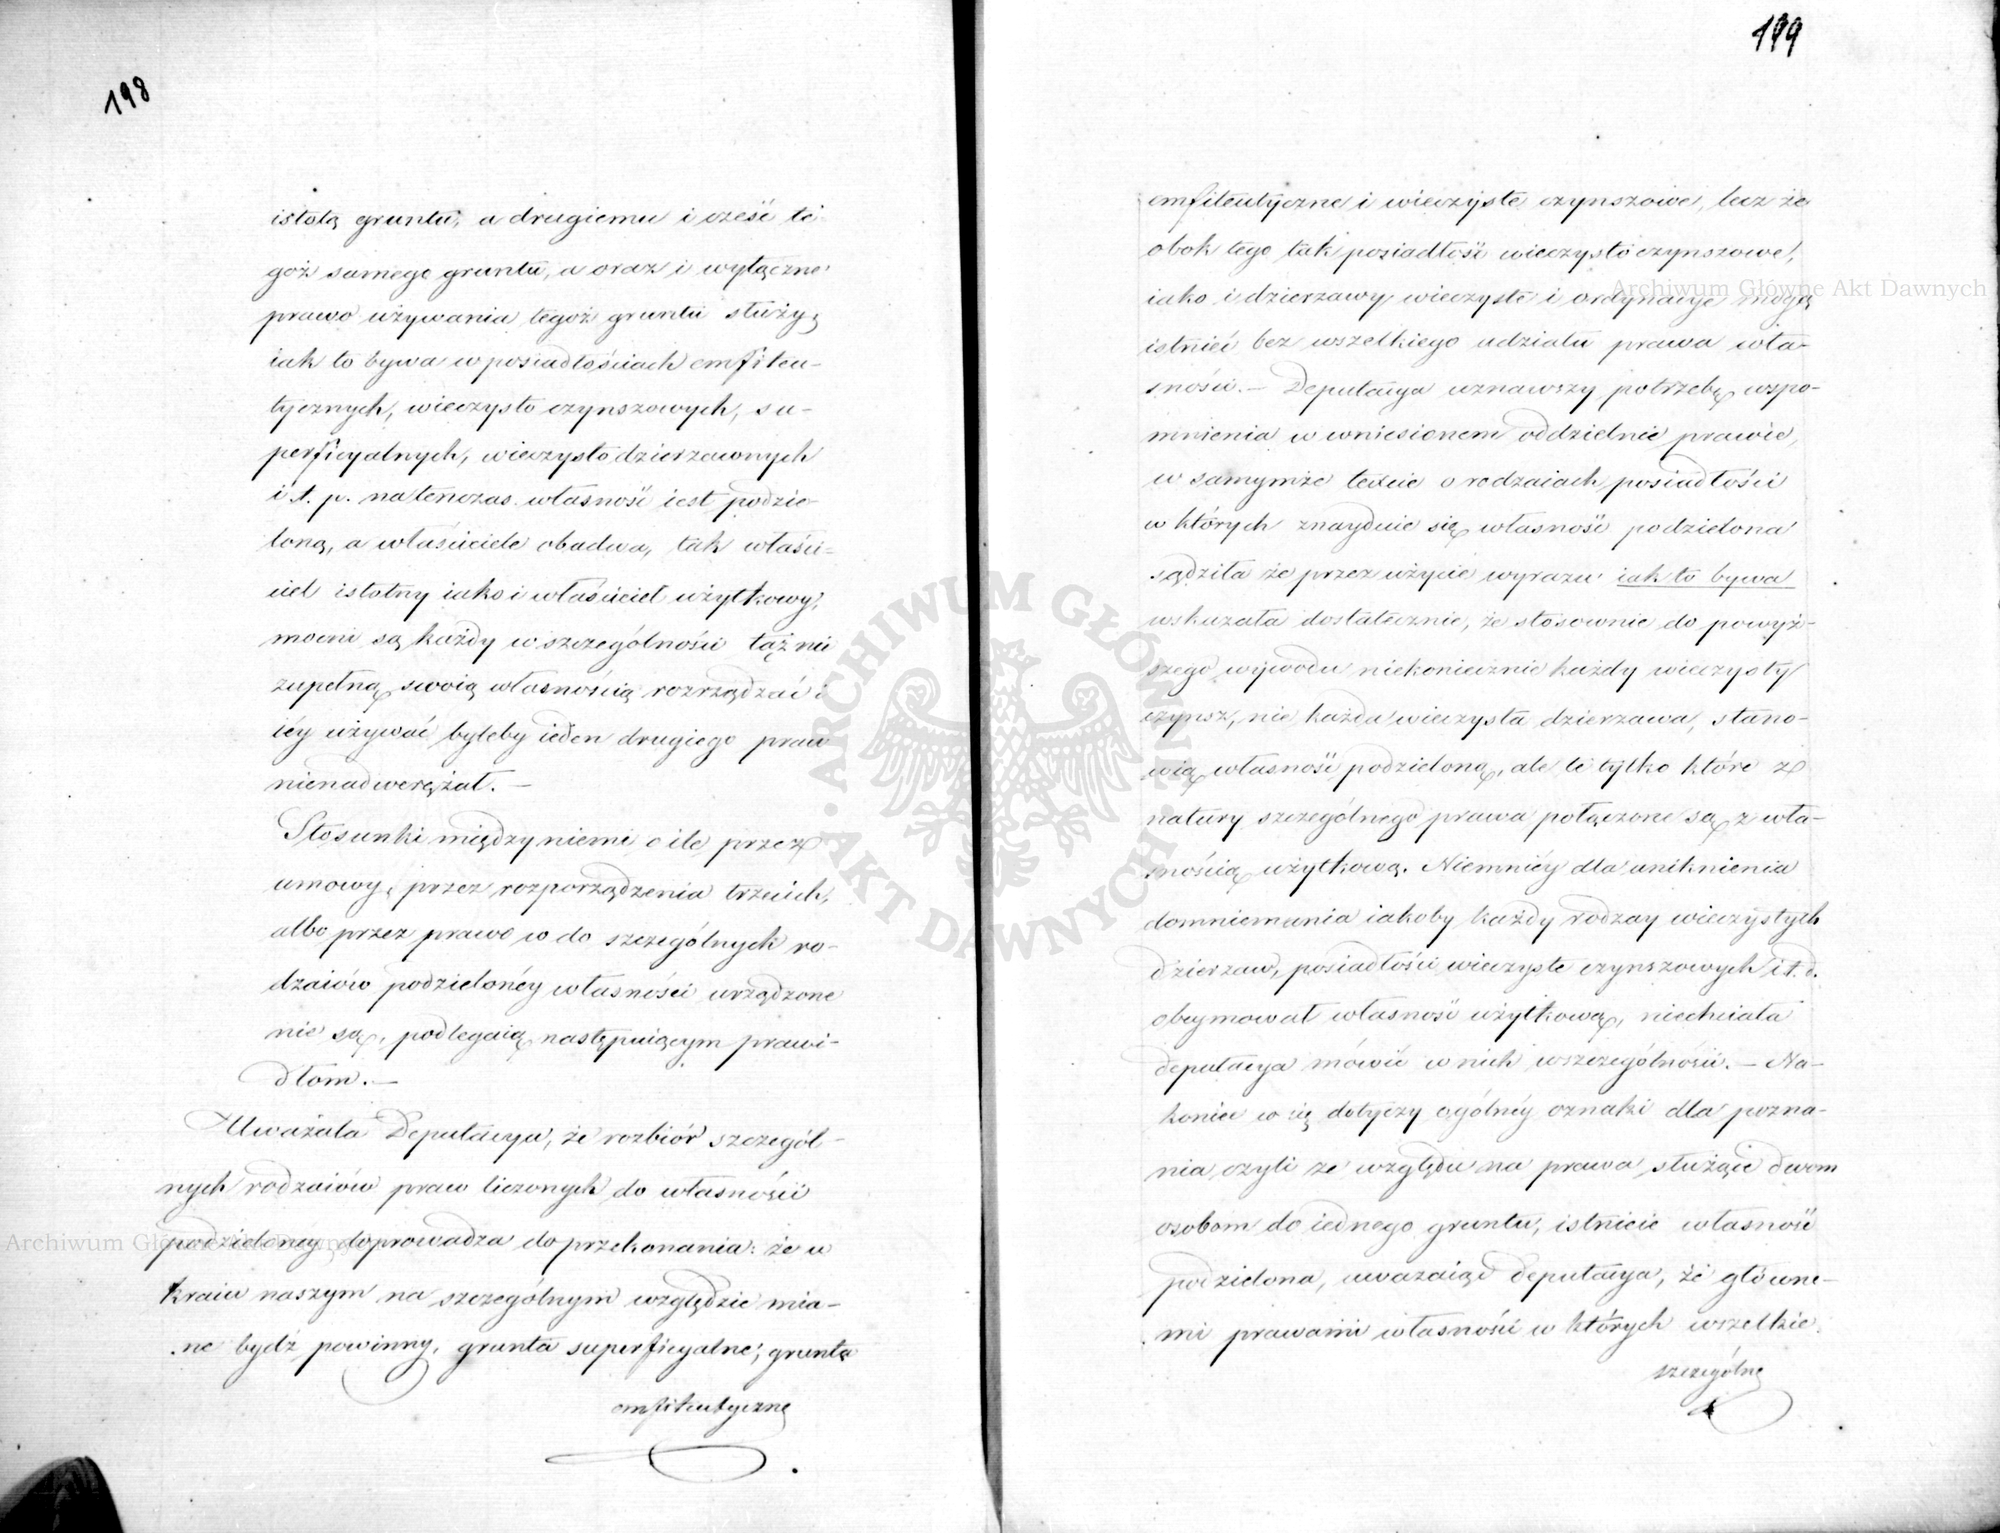 198
istotą gruntu, a drugiemu i cześć te
goż samego gruntu, a oraz i wyłączne
prawo używania tegoż gruntu służy,
iak to bywa w posiadłościach emfiteu-
tycznych, wieczysto czynszowych, su-
perficyalnych, wieczysto dzierzawnych
i t. p. natenczas własność iest podzie-
loną, a właściciele obadwa, tak właści-
ciel istotny iako i właściciel użytkowy,
mocni są każdy w szczególności tąż nie
zupełną swoią własnością rozrządzać i
iéy używać byleby ieden drugiego praw
nienadwerężał. —
Stosunki między niemi o ile przez
umowy, przez rozporządzenia trzecich,
albo przez prawo co do szczególnych ro-
dzaiów podzielonéy własności urządzone
nie są, podlegaią następuiącym prawi-
dłom. —
Uważała Deputacya, że rozbiór szczegól-
nych rodzaiów praw liczonych do własności
podzielonéy doprowadza do przekonania: że w
kraiu naszym na szczególnym względzie mia-
ne bydź powinny, grunta superficyalne, grunta
emfiteutyczne
199
emfiteutyczne i wieczyste czynszowe, lecz że
obok tego tak posiadłości wieczysto czynszowe,
iako i dzierzawy wieczyste i ordynacye mogą
istnieć bez wszelkiego udziału prawa wła-
sności. — Deputacya uznawszy potrzebę wspo-
mnienia w wniesionem oddzielnie prawie,
w samymże texcie o rodzaiach posiadłości
w których znayduie się własność podzielona
sądziła że przez użycie wyrazu iak to bywa
wskazała dostatecznie, że stosownie do powyż-
szego wywodu niekoniecznie każdy wieczysty
czynsz, nie każda wieczysta dzierzawa, stano-
wią własność podzieloną, ale te tylko które z
natury szczególnego prawa połączone są z wła-
snością użytkową. Niemniéy dla uniknienia
domniemania iakoby każdy rodzay wieczystych
dzierzaw, posiadłości wieczyste czynszowych i t. d.
obeymował własność użytkową, niechciała
deputacya mówić o nich wszczególności. — Na-
koniec co się dotyczy ogólnéy oznaki dla pozna-
nia czyli ze względu na prawa służące dwom
osobom do iednego gruntu, istnieie własność
podzielona, uważaiąc deputacya, że główne-
mi prawami własności w których wszelkie
szczególne
Archiwum Główne Akt Dawnych
Archiwum Główne Akt Dawnych
ARCHIWUM GŁÓWNE AKT DAWNYCH